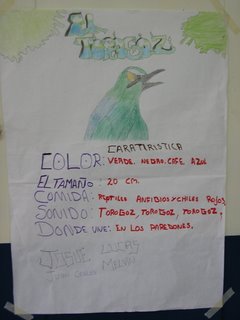 EL
TOROGOZ
CARATIRISTICA
COLOR: VERDE. NEGRO. CAFE AZUL
EL TAMAÑO: 20 CM.
COMIDA: REPTILES ANFIDIOS Y CHILES ROJOS
SONIDO: TOROGOZ, TOROGOZ, TOROGOZ.
DONDE VIVE: EN LOS PAREDONES.
LUCAS
MELVIN